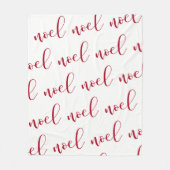 noel noel noel
noel noel noel
noel noel noel noel
noel noel noel
noel noel noel